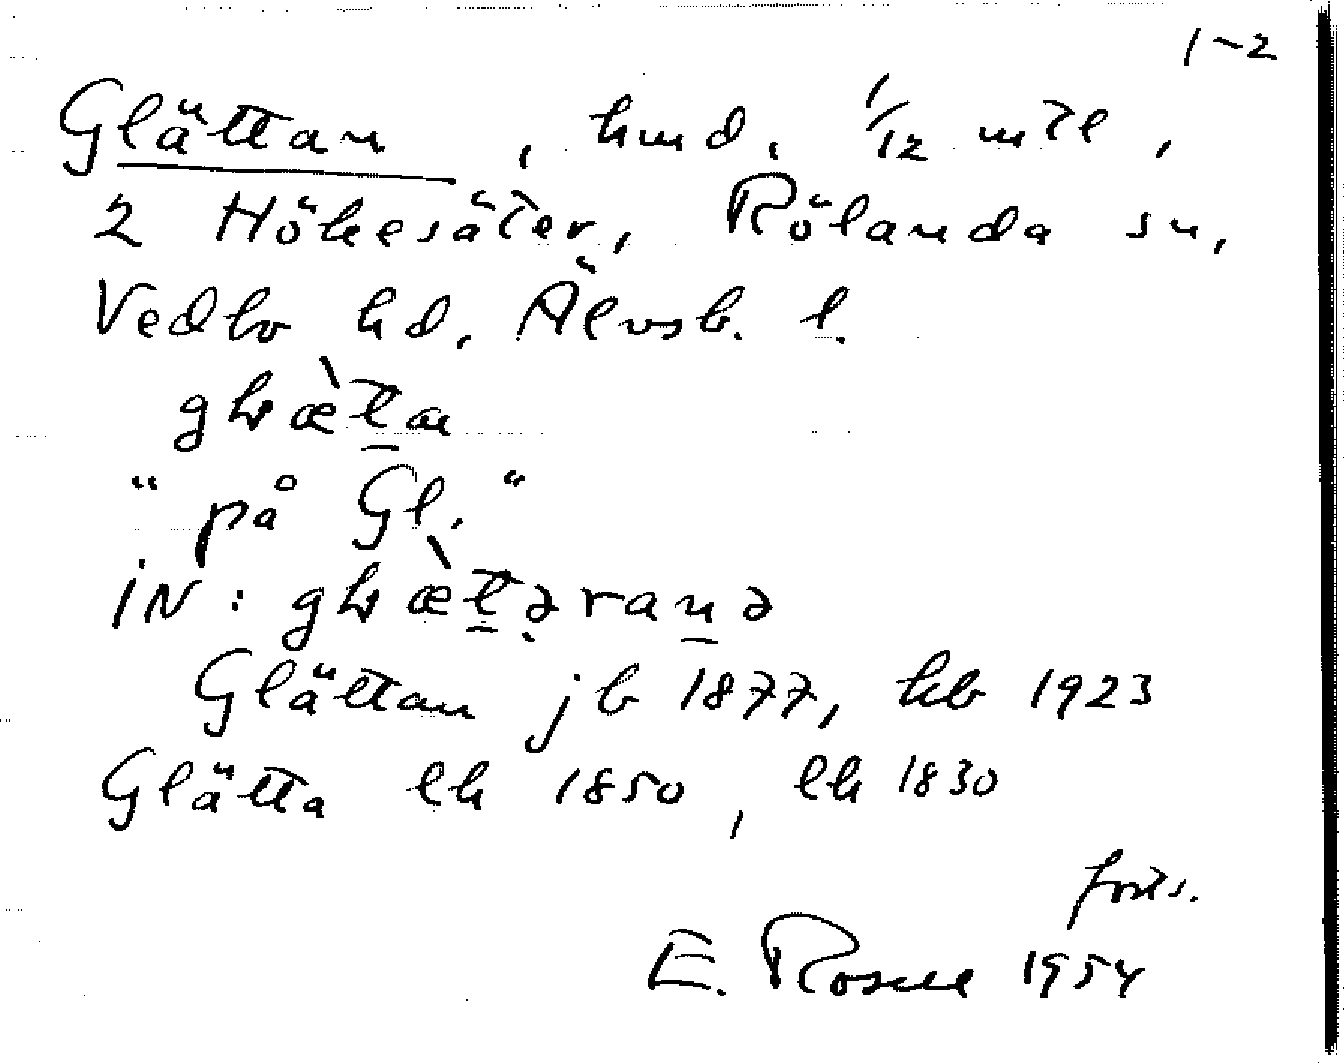 1-2
Glättan, hmd. 1/12 mtl,
2 Hökesäter, Rölanda sn,
Vedbo hd, Älvsb. l.
"på Gl."
IN:
Glättan jb 1877, kb 1923
Glätta lk 1850, lk 1830
forts.
E. Rosell 1954